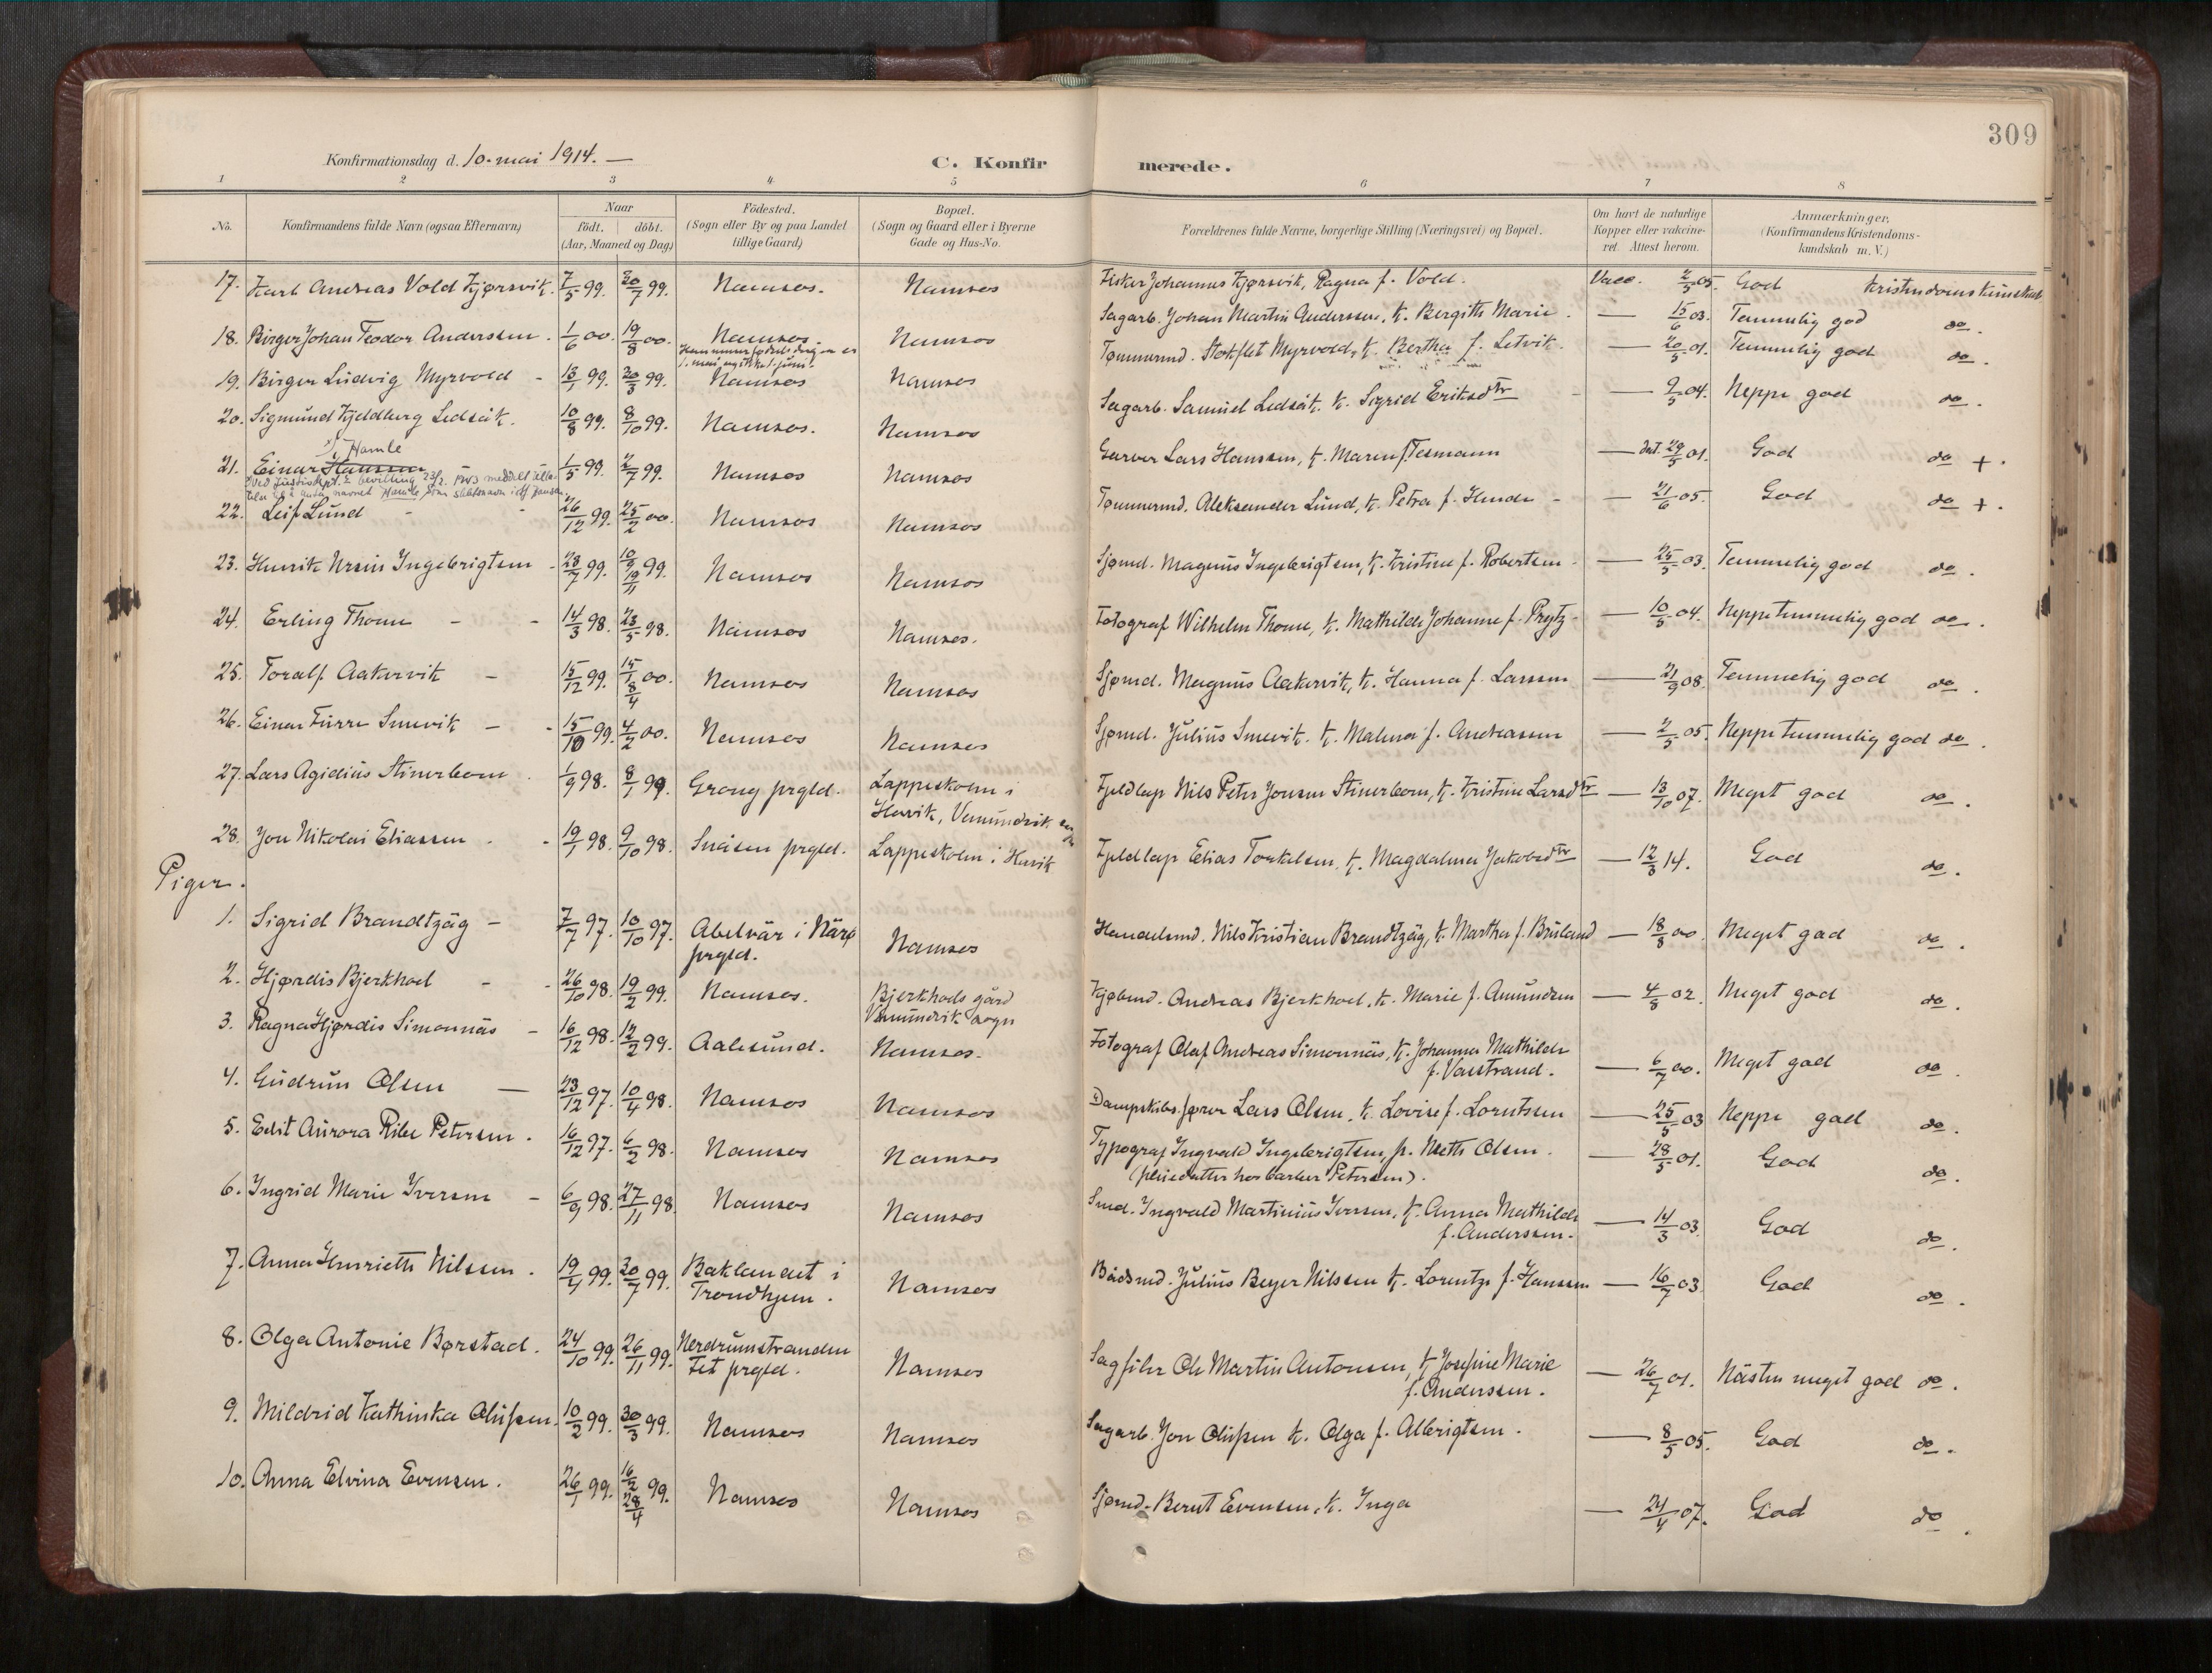 309
Konfirmationsdag d. 10. mai 1914. —
C. Konfirmerede.
1 2 3 4 5 6 7 8
No. Konfirmandens fulde Navn (ogsaa Efternavn) Naar födt. döbt. (Aar, Maaned og Dag) Födested. (Sogn eller By og paa Landet tillige Gaard) Bopæl. (Sogn og Gaard eller i Byerne Gade og Hus-No. Forældrenes fulde Navne, borgerlige Stilling (Næringsvei) og Bopæl. Om havt de naturlige Kopper eller vakcineret. Attest herom. Anmærkninger, (Konfirmandens Kristendomskundskab m. V.)
17. Karl Andreas Vold Kjørsvik. 7/5 99. 30/7 99. Namsos. Namsos Fisker Johannes Kjørsvik, Ragna f. Vold. Vacc. 2/5 05. God Kristendomskundskab
18. Birger Johan Teodor Anderssen. 1/6 00. 19/8 00. Namsos. Namsos Sagarb. Johan Martin Anderssen, k. Bergith Marie. — 15/6 03. Temmelig god do.
Han mener fødselsdagen er 1. mai og ikke 1. juni.
19. Birger Ludvig Myrvold - 13/1 99. 30/3 99. Namsos Namsos Tømmermd. Stokflet Myrvold, k. Bertha f. Letvik. — 20/5 01. Temmelig god do.
20. Sigmund Kjeldberg Ledsåk. 10/8 99. 8/10 99. Namsos. Namsos Sagarb. Samuel Ledsåk. k. Sigrid Eriksdtr — 9/5 04. Neppe god do.
x) Hamle
21. Einar Hanssen 1/5 99. 2/7 99. Namsos Namsos Garver Lars Hanssen, k. Maren f. Tesmann — dat. 29/5 01. God do +.
x) Ved Justisdept.s bevilling 23/2 1923 meddelt tilladelse til å anta navnet Hamle som slektsnavn istf. Hanssen
22. Leif Lund - - 26/12 99. 25/2 00. Namsos Namsos Tømmermd. Aleksander Lund, k. Petra f. Hunde - — 21/6 05. God do +.
23. Henrik Ursin Ingebrigtsen - 23/7 99. 10/9 19/11 99. Namsos Namsos Sjømd. Magnus Ingebrigtsen, k. Kristine f. Robertsen. — 25/5 03. Temmelig god do.
24. Erling Thome - - 14/3 98. 23/5 98. Namsos Namsos. Fotograf Wilhelm Thome, k. Mathilde Johanne f. Prytz - — 10/5 04. Neppe temmelig god do.
25. Toralf Aakervik - 15/12 99. 15/1 8/4 00. Namsos Namsos Sjømd. Magnus Aakervik, k. Hanna f. Larssen — 21/9 08. Temmelig god do.
26. Einar Furre Smevik - - 15/10 99. 4/2 00. Namsos Namsos Sjømd. Julius Smevik. k. Malena f. Andreassen — 2/5 05. Neppe temmelig god do.
27. Lars Agidius Stinerbom. 1/9 98. 8/1 99. Grong prgld. Lappeskolen i Havik, Vemundvik sogn Fjeldlap Nils Peter Jonsen Stinerbom, k. Kristine Larsdtr — 13/10 07. Meget god do.
28. Jon Nikolai Eliassen. - 19/1 98. 9/10 98. Snåsen prgld. Lappeskolen i Havik Fjeldlap Elias Torkelsen, k. Magdalena Jakobsdtr — 12/3 14. God do.
Piger.
1. Sigrid Brandtzäg - 7/7 97. 10/10 97. Abelvär i Närø prgld. Namsos Handelsmd. Nils Kristian Brandtzäg, k. Martha f. Brûland — 18/8 00. Meget god do.
2. Hjørdis Bjerkhoel - - 26/10 98. 19/2 99. Namsos. Bjerkhoels gård Vemundvik sogn Kjøbmd. Andreas Bjerkhoel, k. Marie f. Amundsen — 4/8 02. Meget god do.
3. Ragna Hjørdis Simonnäs - 16/12 98. 12/2 99. Aalesund. Namsos. Fotograf Olaf Andreas Simonnäs, k. Johanna Mathilde f. Varstrand. — 6/7 00. Meget god do.
4. Gudrun Olsen — 23/12 97. 10/4 98. Namsos Namsos Dampskibsfører Lars Olsen, k. Lovise f. Lorentsen — 25/5 03 Neppe god do.
5. Edit Aurora Ribe Petersen. 16/12 97. 6/2 98. Namsos Namsos Typograf Ingvald Ingebrigtsen, p. Neeth Olsen. — 28/5 01. God do.
(pleiedatter hos barber Petersen).
6. Ingrid Marie Iversen - 6/9 98. 27/11 98. Namsos Namsos Smd. Ingvald Martinius Iversen, k. Anna Mathilde f. Anderssen. — 14/3 03. God do.
7. Anna Henriette Nilssen. 19/4 99. 30/7 99. Baklandet i Trondhjem. Namsos Bådsmd. Julius Beyer Nilssen k. Lorentze f. Hanssen — 16/7 03 God do.
8. Olga Antonie Børstad. 24/10 99. 26/11 99. Nerdrumstranden Fet prgld. Namsos Sagfiler Ole Martin Antonsen, k. Josefine Marie f. Anderssen. — 26/7 01. Nästen meget god do.
9. Mildrid Kathinka Olufsen. 10/2 99. 30/3 99. Namsos Namsos Sagarb. Jon Olufsen k. Olga f. Albrigtsen. — 8/5 05. God do.
10. Anna Elvina Evensen. 26/1 99. 16/2 28/4 99. Namsos Namsos Sjømd. Bernt Evensen, k. Inga — 24/4 07. God do.